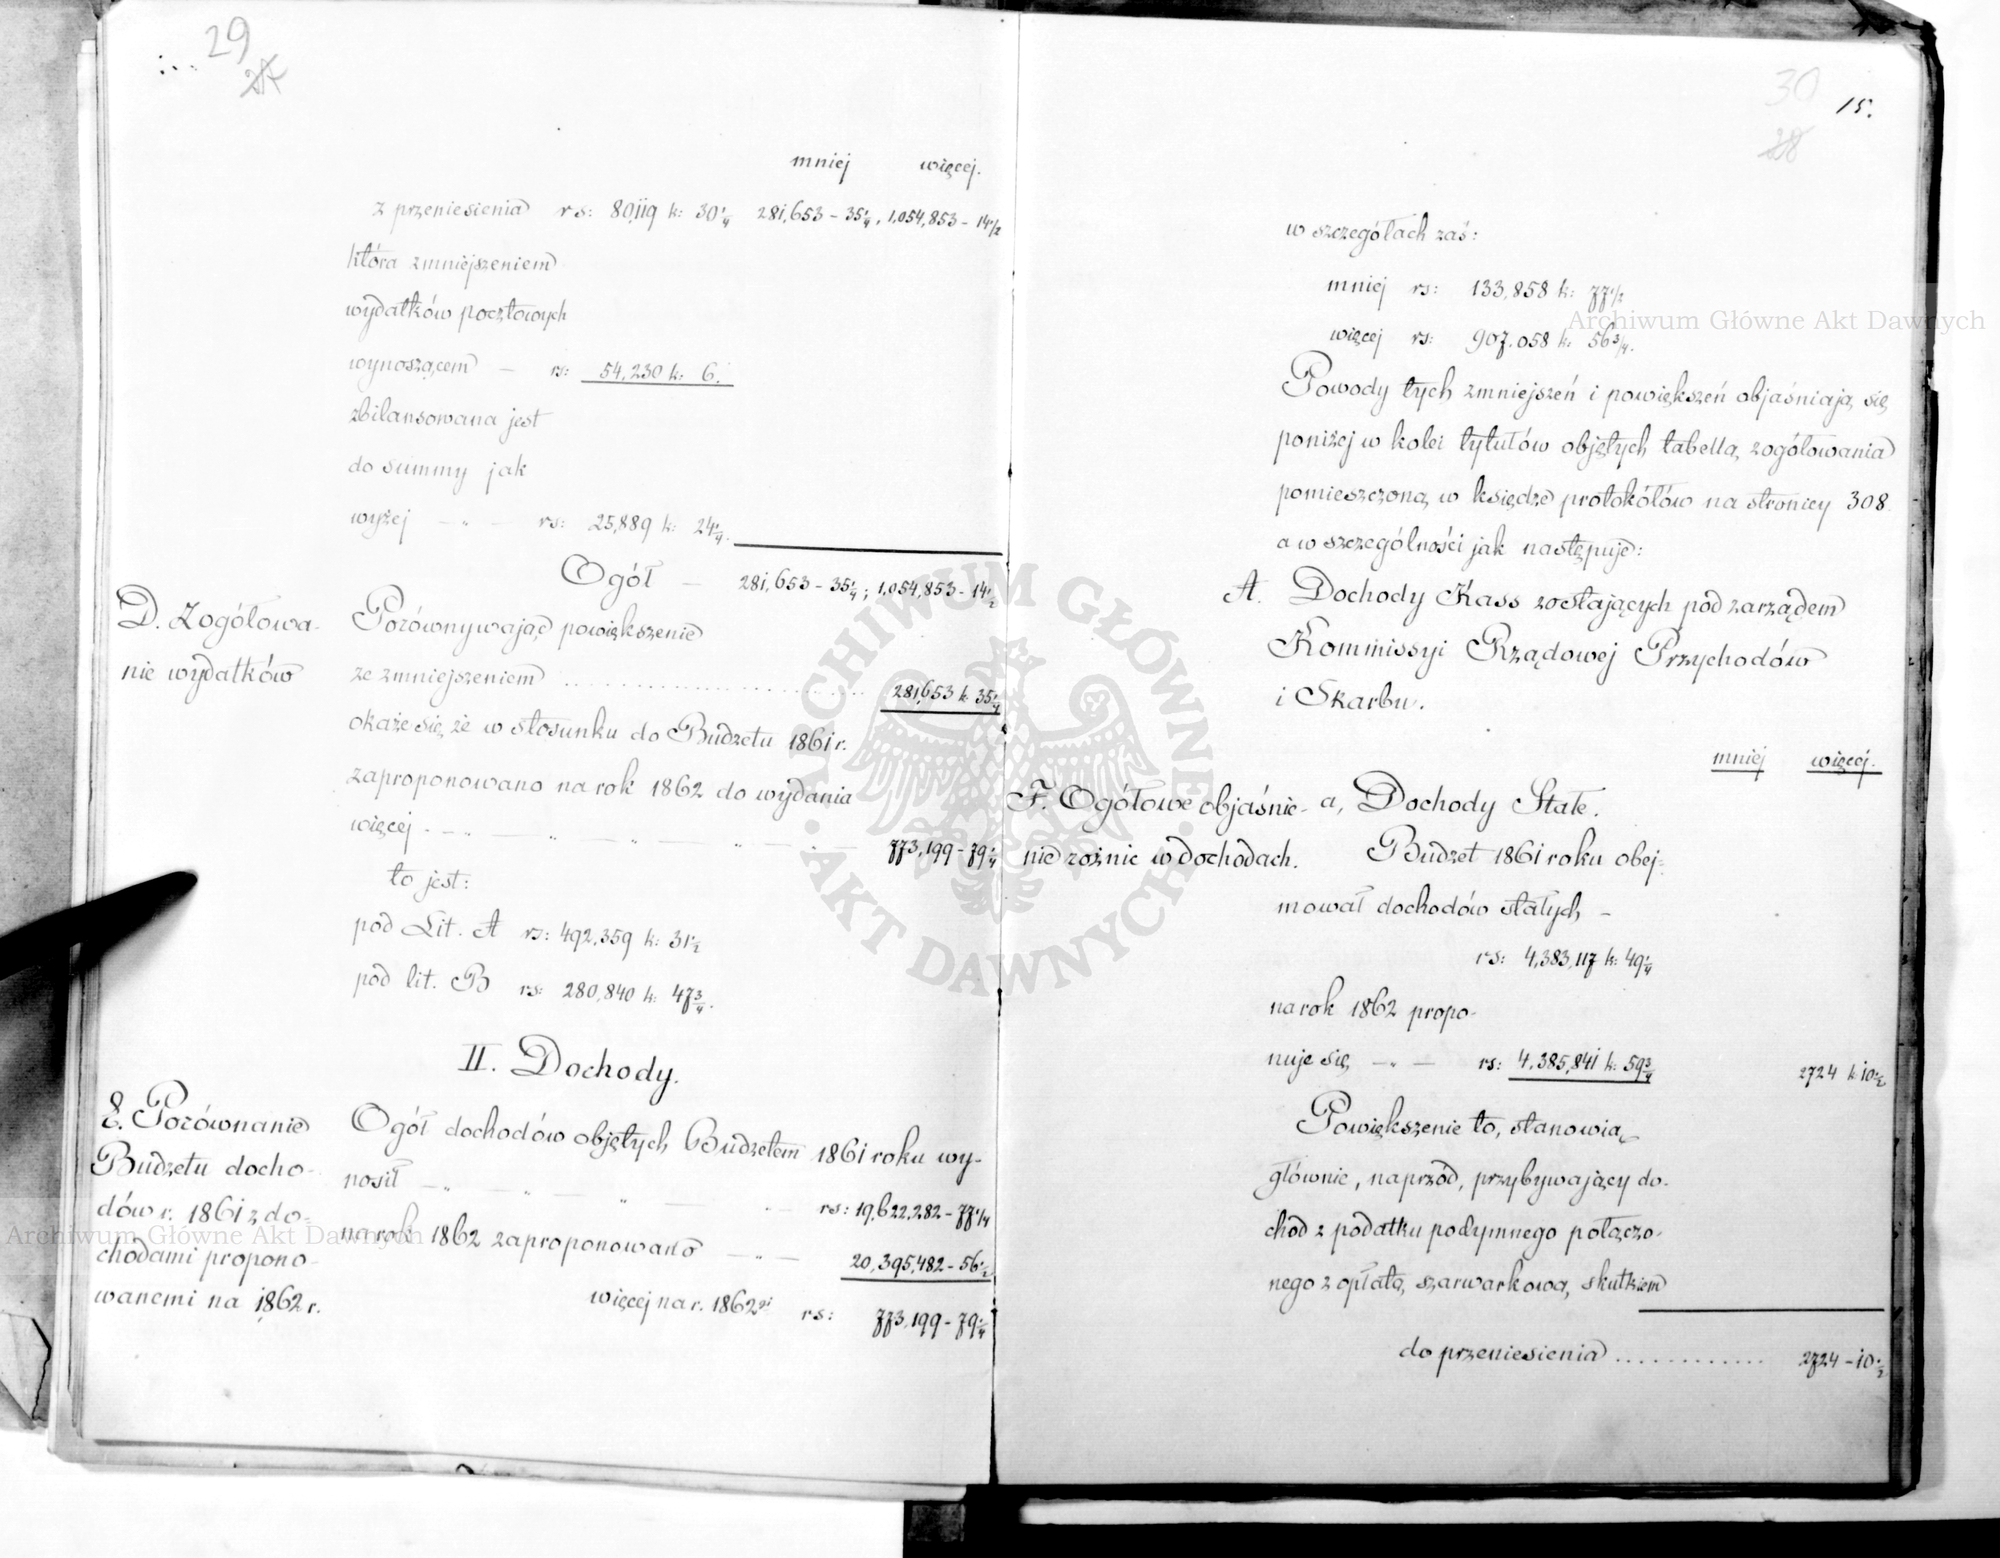 29
mniej więcej.
z przeniesienia rs: 80,119 k: 30 1/4 281,653 - 35 1/4, 1,054,853 - 14 1/2
która zmniejszeniem
wydatków pocztowych
wynoszącem — rs: 54,230 k: 6.
zbilansowana jest
do summy jak
wyżej — „ — rs: 25,889 k: 24 1/4.
Ogół — 281,653 - 35 1/4; 1,054,853 - 14 1/2
D. Zogółowa-
nie wydatków
Porównywając powiększenie
ze zmniejszeniem ........ 281,653 k. 35 1/4
okaże się że w stosunku do Budżetu 1861 r.
zaproponowano na rok 1862 do wydania
więcej - — „ — „ — „ — „ — 773,199 - 79 1/4
to jest:
pod Lit. A rs: 492,359 k: 31 1/2
pod lit. B rs: 280,840 k: 47 3/4.
II. Dochody.
E. Porównanie
Budżetu docho-
dów r. 1861 z do-
chodami propono-
wanemi na 1862 r.
Ogół dochodów objętych Budżetem 1861 roku wy-
nosił — „ — „ — „ — „ — rs: 19,622,282 - 77 1/4
na rok 1862 zaproponowano — „ — 20,395,482 - 56 1/2
więcej na r. 1862 rs: 773,199 - 79 1/4
30
15.
28
w szczegółach zaś:
mniej rs: 133,858 k: 77 1/2
więcej rs: 907,058 k: 56 3/4.
Powody tych zmniejszeń i powiększeń objaśniają się
poniżej w kolei tytułów objętych tabellą zogółowania
pomieszczoną w księdze protokółów na stronicy 308
a w szczególności jak następuje:
A. Dochody Kass zostających pod zarządem
Kommissyi Rządowej Przychodów
i Skarbu.
mniej więcej.
F. Ogółowe objaśnie-
nie różnic w dochodach.
a, Dochody Stałe.
Budżet 1861 roku obej-
mował dochodów stałych —
rs: 4,383,117 k: 49 1/4
na rok 1862 propo-
nuje się — „ — rs: 4,385,841 k: 59 3/4 2724 k: 10 1/2
Powiększenie to, stanowią
głównie, naprzód, przybywający do-
chód z podatku podymnego połączo-
nego z opłatą szarwarkową, skutkiem
do przeniesienia ............ 2724 - 10 1/2
Archiwum Główne Akt Dawnych
Archiwum Główne Akt Dawnych
ARCHIWUM GŁÓWNE · AKT DAWNYCH ·